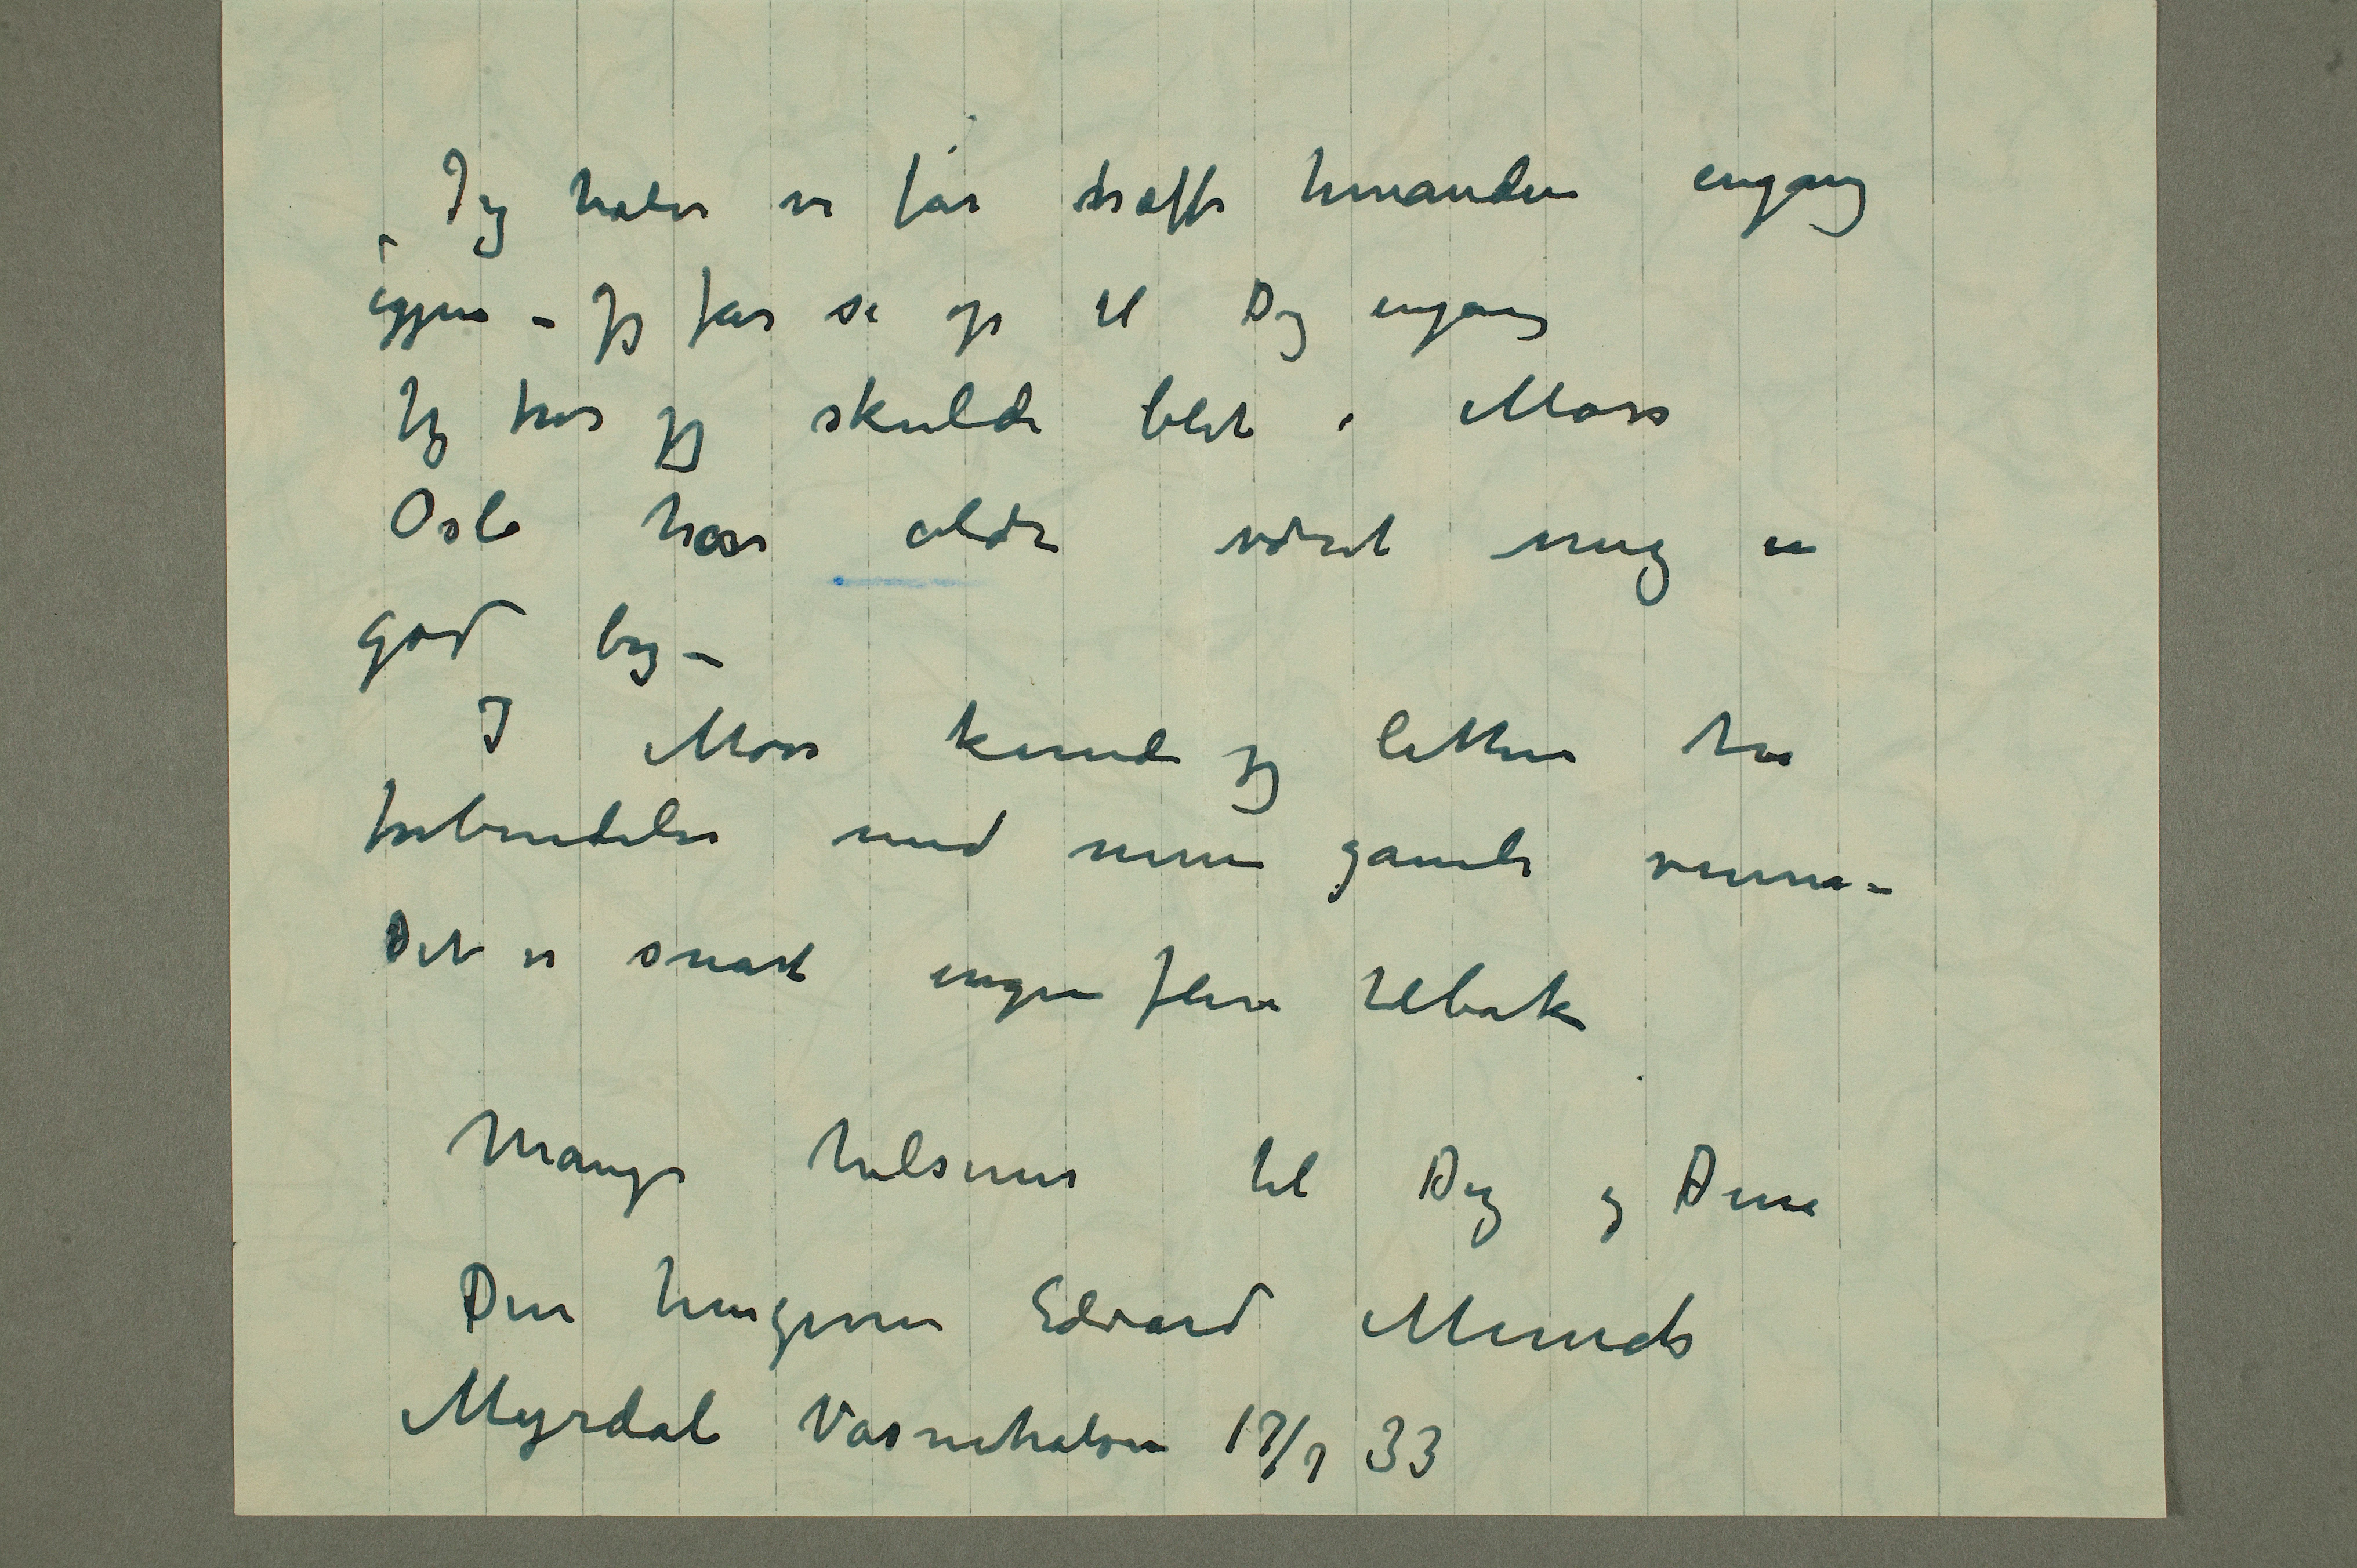 Jeg håber vi får træffe hinanden engang
igjen – Jeg får se op til Dig engang
Jeg tror jeg skulde blet i Moss
Oslo har aldri været mig en
god by –
I Moss kunde jeg lettere ha
forbindelse med mine gamle venner –
Det er snart ingen flere tilbake
Mange hilsener til Dig og Dine
Din hengivne Edvard Munch
Myrdal Vasnehalsen 17/7 33